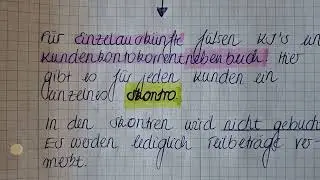 Für Einzelauskünfte führen KI's ein
Kundenkontokorrentnebenbuch. Hier
gibt es für jeden Kunden ein
einzelnes Skontro.
In den Skontren wird nicht gebucht
Es werden lediglich Teilbeträge ver-
merkt.